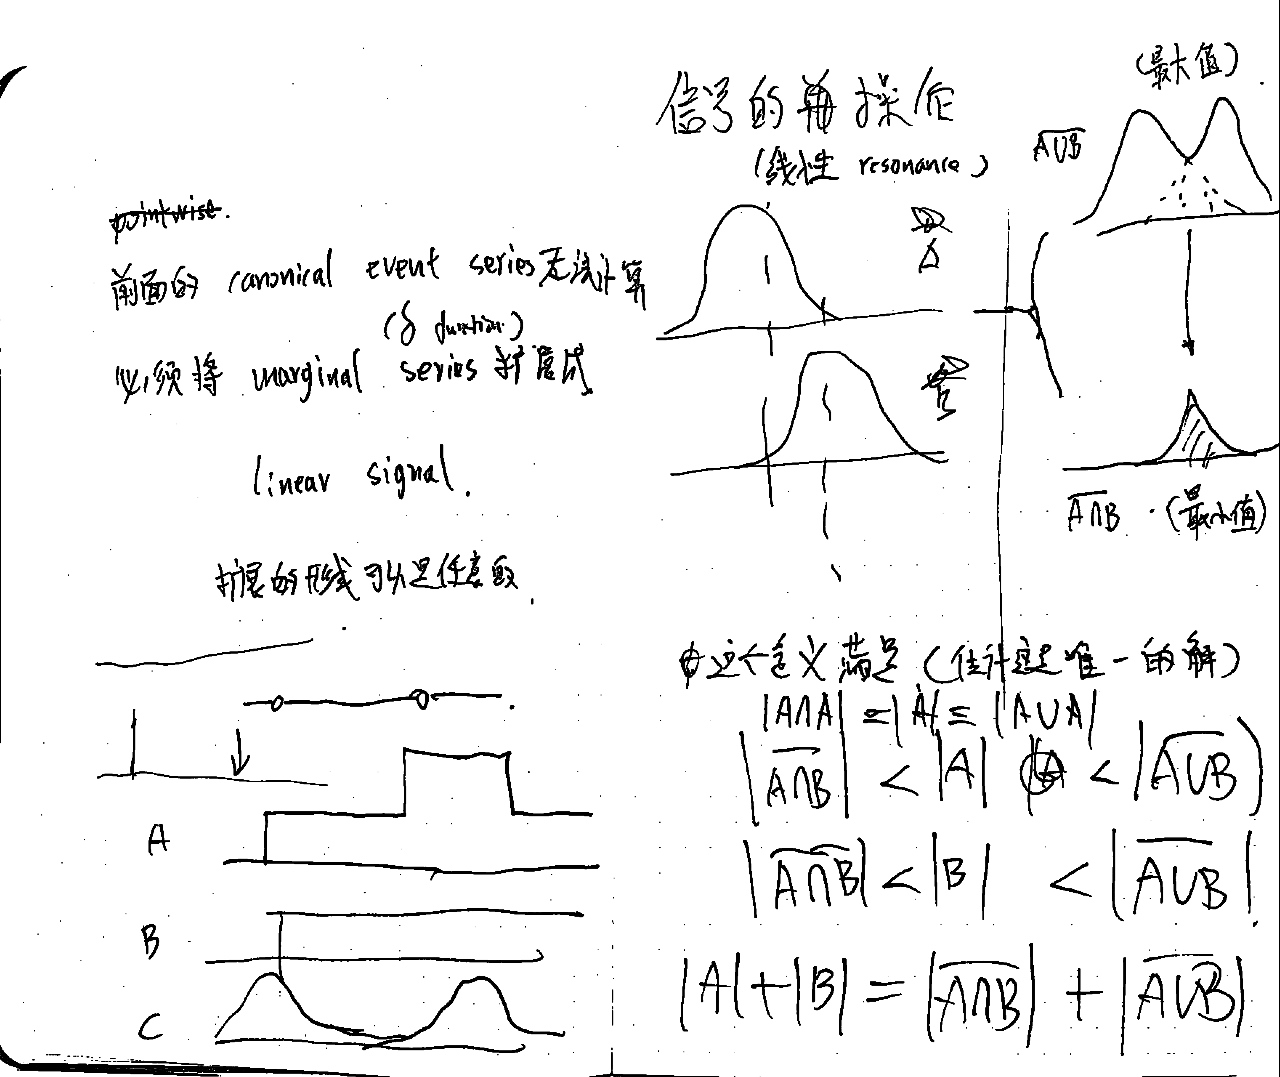 pointwise.
前面的 canonical event series 无法计算
(δ function)
必须将 marginal series 扩展成
linear signal.
扩展的形线可以是任意的.
A
B
C
信号的 操作
(线性 resonance)
A
B
(最大值)
A∪B
A∩B (最小值)
这个定义满足 (估计是唯一的解)
|A∩A| = |A| = |A∪A|
|A∩B| < |A| < |A∪B|
|A∩B| < |B| < |A∪B|
|A|+|B| = |A∩B| + |A∪B|